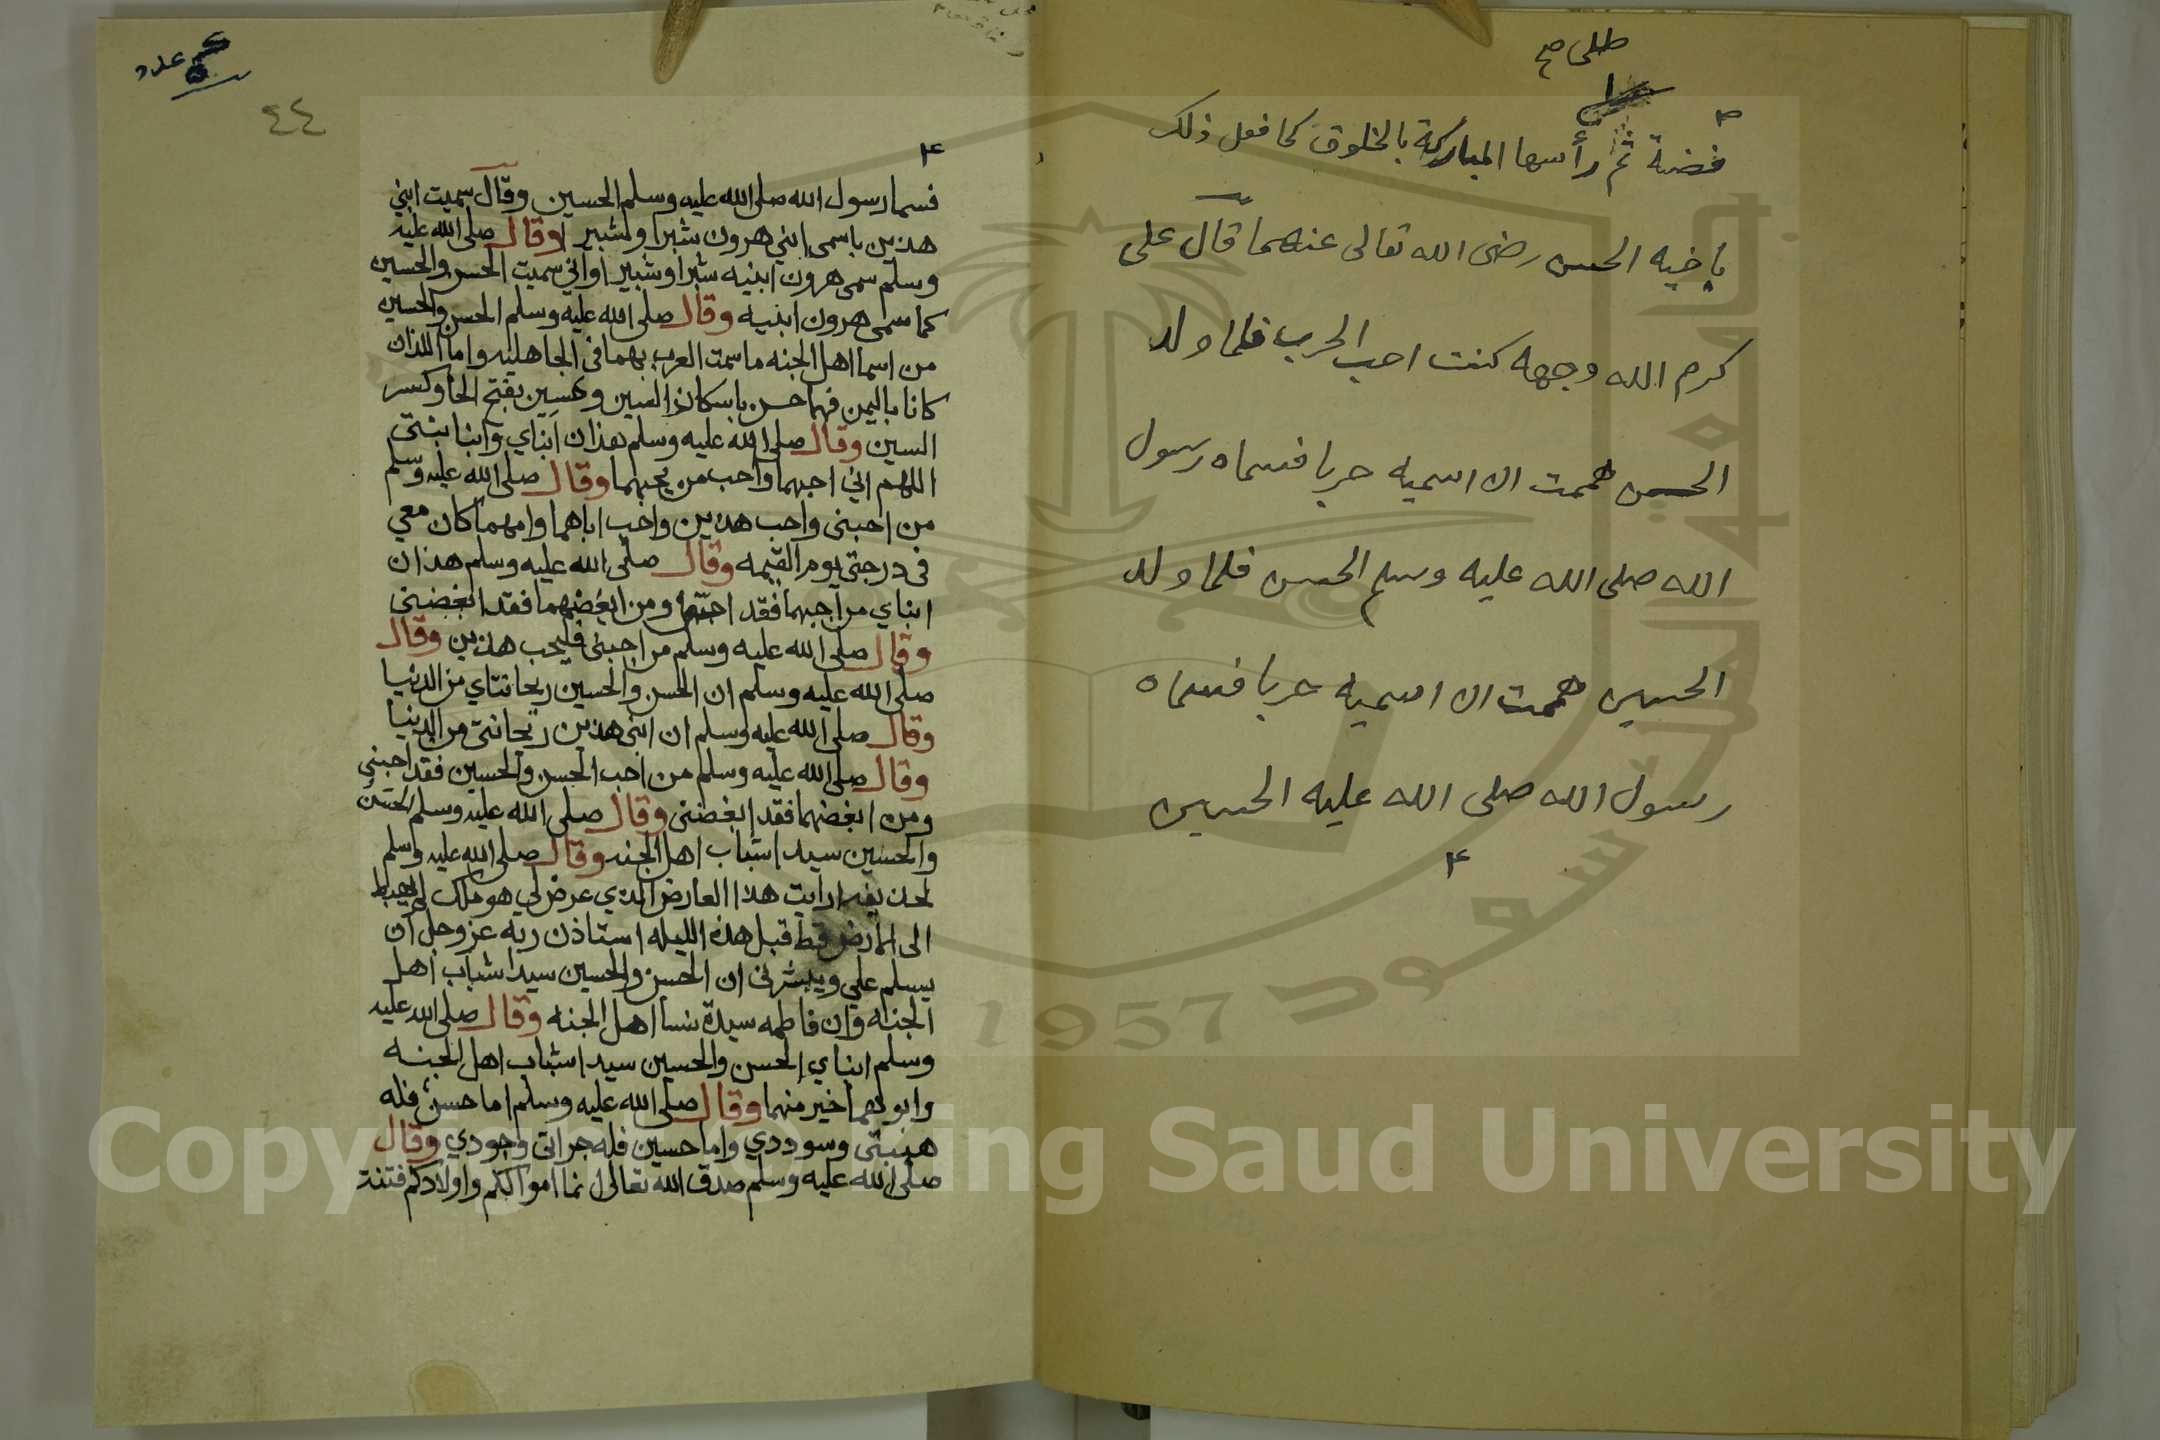 طلى صح
فضة ثم رأسها المباركة بالخلوق كما فعل ذلك
باخيه الحسن رضى الله تعالى عنهما قال على
كرم الله وجهه كنت احب الحرب فلما ولد
الحسن هممت ان اسميه حربا فسماه رسول
الله صلى الله عليه وسلم الحسن فلما ولد
الحسين هممت ان اسميه حربا فسماه
رسول الله صلى الله عليه الحسين
٤
عدد
٤٤
٤
فسما رسول الله صلى الله عليه وسلم الحسين وقال سميت ابني
هذين باسمى ابني هرون شبرا وشبيرا وقال صلى الله عليه
وسلم سمى هرون ابنيه شبرا وشبيرا واني سميت الحسن والحسين
كما سمى هرون ابنيه وقال صلى الله عليه وسلم الحسن والحسين
من اسما اهل الجنه ما سمت العرب بهما فى الجاهليه واما اللذان
كانا باليمن فهما حسن باسكان السين وحسين بفتح الحا وكسر
السين وقال صلى الله عليه وسلم هذان ابناي وابنا بنتى
اللهم اني احبهما واحب من يحبهما وقال صلى الله عليه وسلم
من احبنى واحب هذين واحب اباهما وامهما كان معي
فى درجتى يوم القيمه وقال صلى الله عليه وسلم هذان
ابناي من احبهما فقد ومن ابغضهما فقد ابغضنى
وقال صلى الله عليه وسلم من احبنى فليحب هذين وقال
صلى الله عليه وسلم ان الحسن والحسين ريحانتاي من الدنيا
وقال صلى الله عليه وسلم ان ابنى هذين ريحانتى من الدنيا
وقال صلى الله عليه وسلم من احب الحسن والحسين فقد احبني
ومن ابغضهما فقد ابغضنى وقال صلى الله عليه وسلم الحسن
والحسين سيدا شباب اهل الجنه وقال صلى الله عليه وسلم
لحذيفه ارايت هذا العارض الذي عرض لي هو ملك لم يهبط
الى الارض قط قبل هذه الليله استاذن ربه عز وجل ان
يسلم علي ويبشرنى ان الحسن والحسين سيدا شباب اهل
الجنه وان فاطمه سيدة نسا اهل الجنه وقال صلى الله عليه
وسلم ابناي الحسن والحسين سيدا شباب اهل الجنه
وابوهما خير منهما وقال صلى الله عليه وسلم اما حسن فله
هيبتى وسوددي واما حسين فله جراتى وجودي وقال
صلى الله عليه وسلم صدق الله تعالى انما اموالكم واولادكم فتنة
جامعة الملك سعود
1957
Copyright © King Saud University